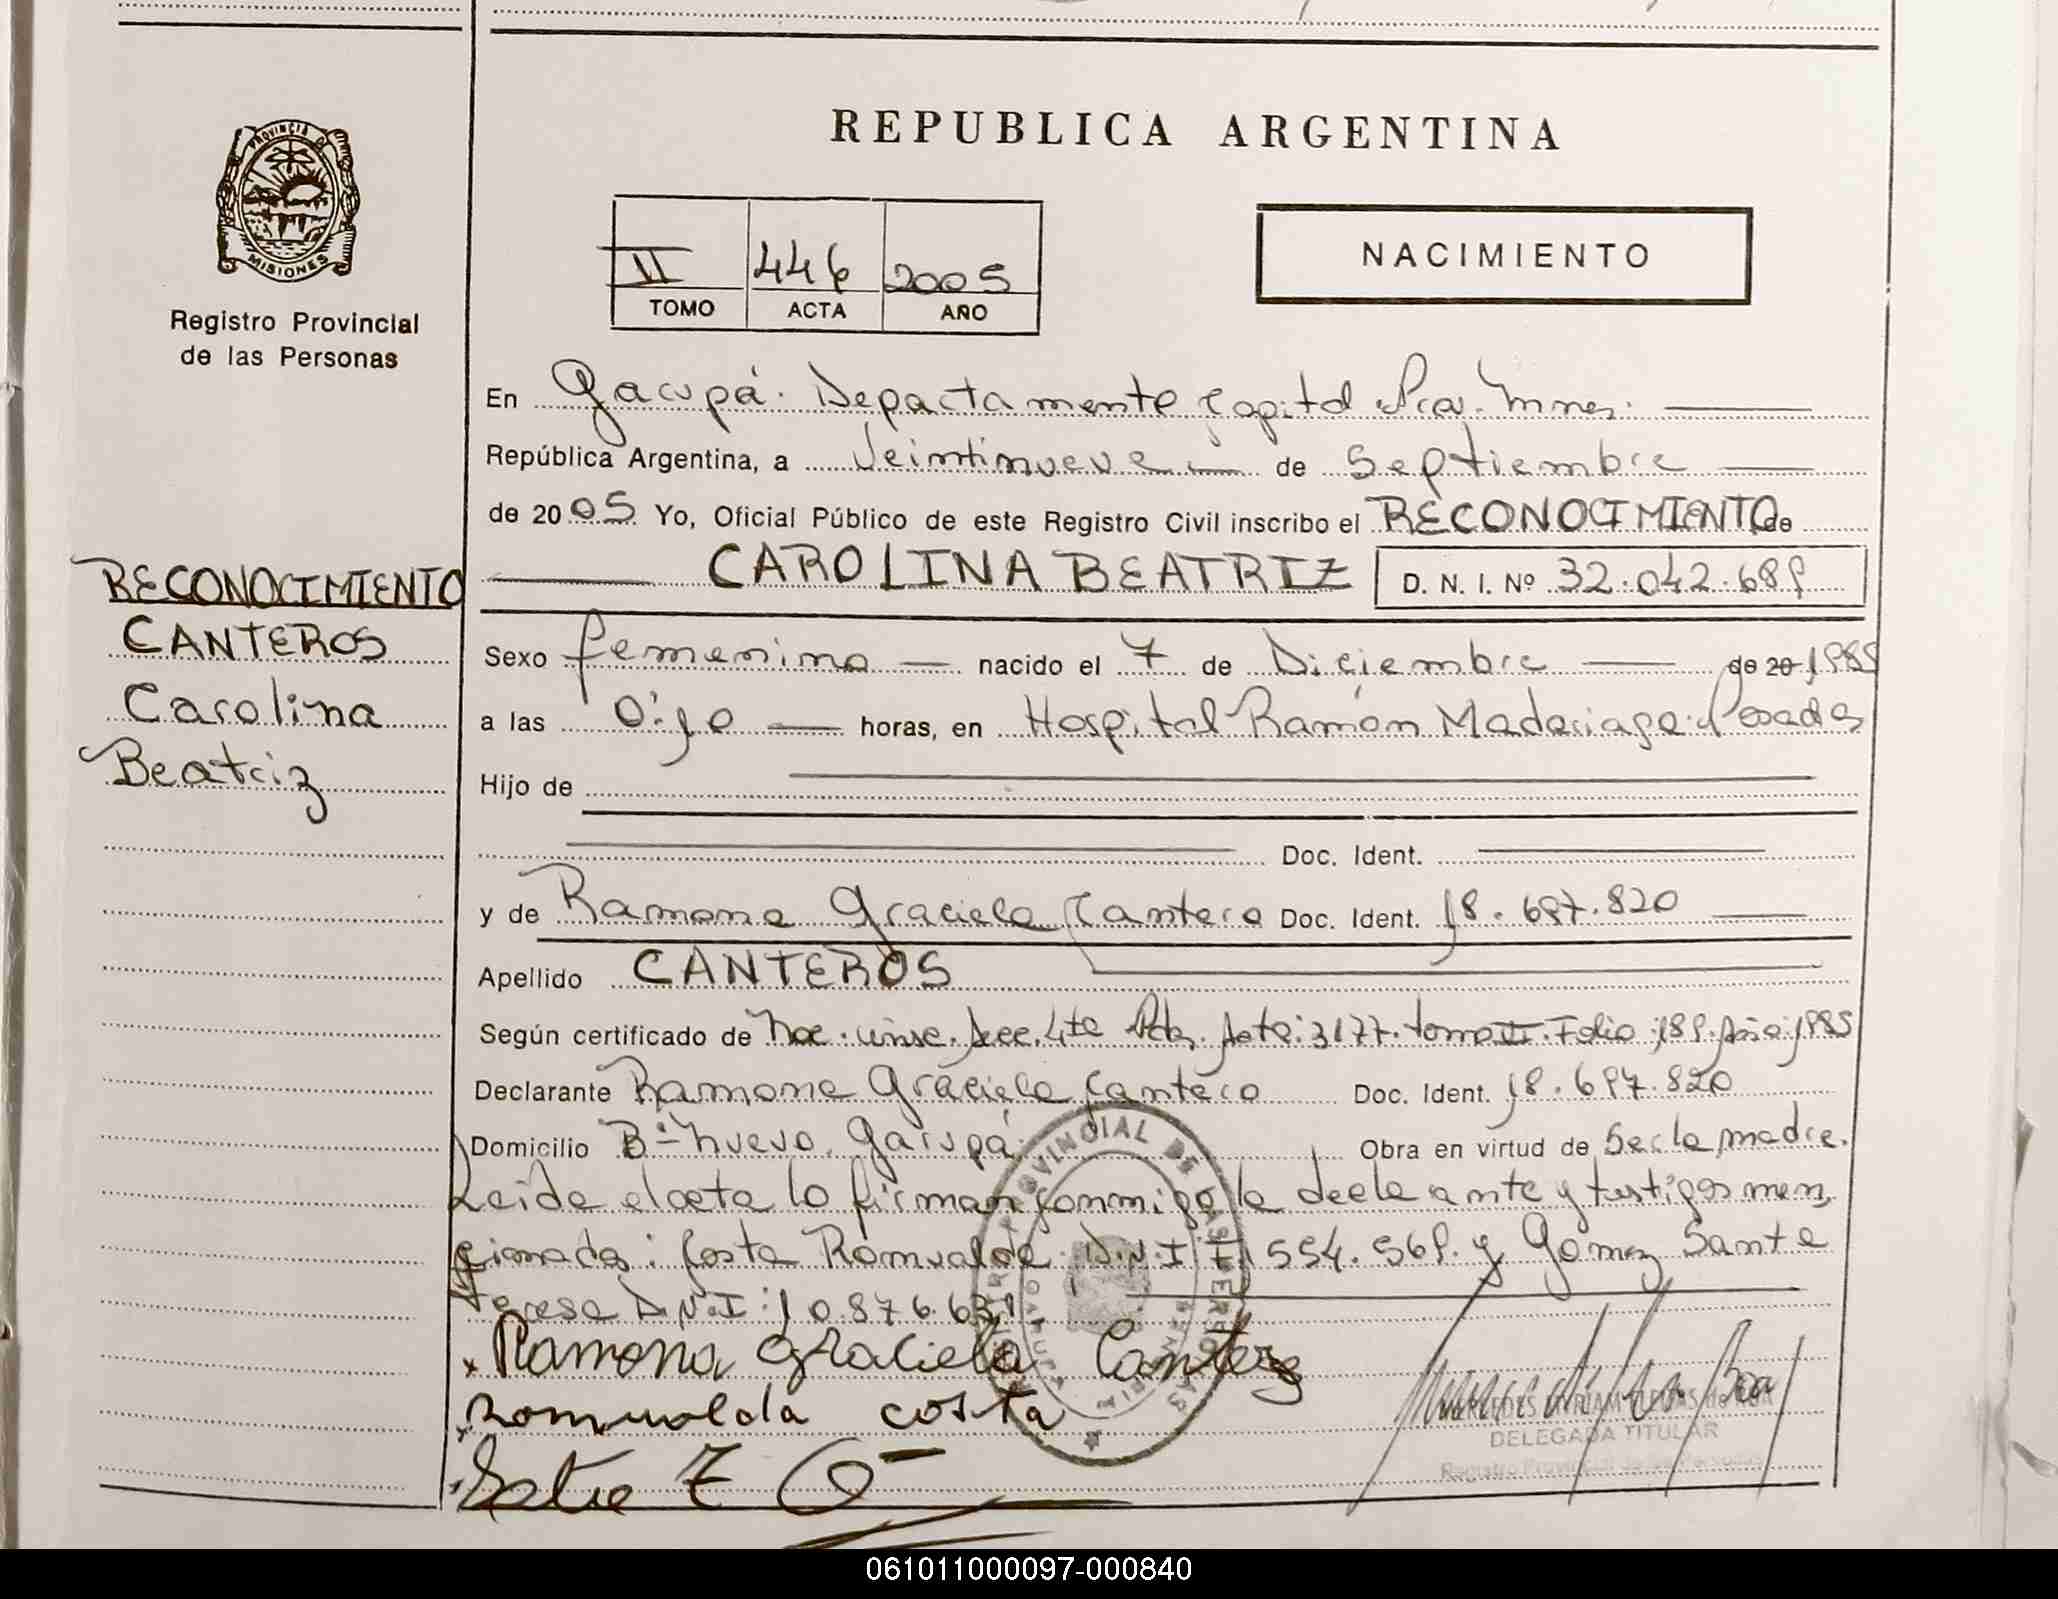 PROVINCIA D
MISIONES
Registro Provincial
de las Personas
RECONOCIMIENTO
CANTEROS
Carolina
Beatriz
REPUBLICA ARGENTINA
II 446 2005
TOMO ACTA AÑO
NACIMIENTO
En Garupá. Departamento Capital Pcia. Mnes.
República Argentina, a Veintinueve de Septiembre
de 2005 Yo, Oficial Público de este Registro Civil inscribo el RECONOCIMIENTO de
CAROLINA BEATRIZ D. N. I. Nº 32.042.689
Sexo femenino nacido el 7 de Diciembre de 20 1985
a las 0:10 horas, en Hospital Ramón Madariaga. Posadas
Hijo de
Doc. Ident.
y de Ramona Graciela Cantero Doc. Ident. 18.697.820
Apellido CANTEROS
Según certificado de Nac. Secc. 4ta Pdas. Acta: 3177. tomo II. Folio 189. Año 1985
Declarante Ramona Graciela Cantero Doc. Ident. 18.697.820
Domicilio Bº Nuevo. Garupá. Obra en virtud de Ser la madre.
Leida el acta la firman conmigo la declarante y testigos men
cionados: Costa Romualda. D.N.I 554.569. y Gomez Santa
Teresa D.N.I: 10.876.631
x Ramona Graciela Cantero
x Romualda costa
REGISTRO PROVINCIAL DE LAS PERSONAS
GARUPA
MERCEDES MYRIAM de BOA
DELEGADA TITULAR
Registro Provincial de las Personas
061011000097-000840